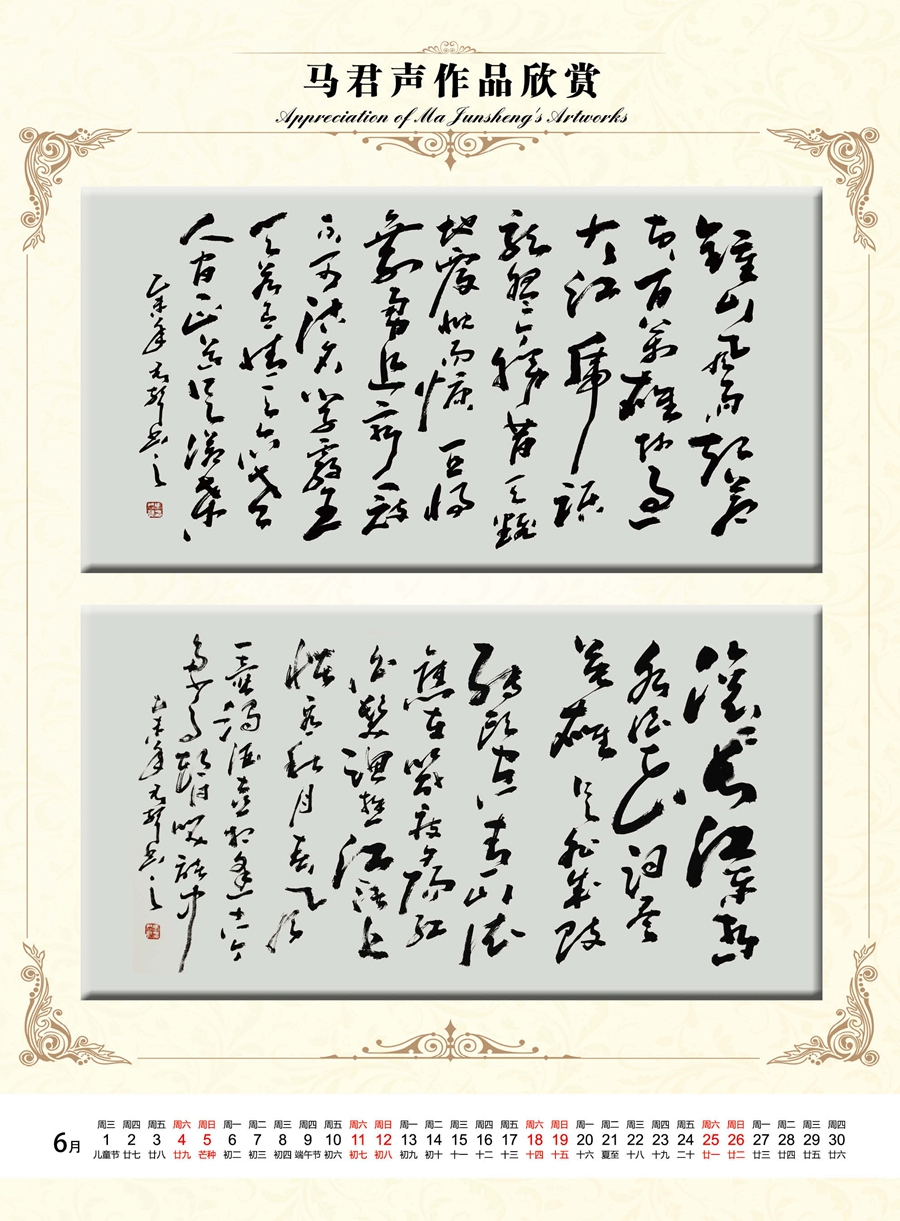 马君声作品欣赏
Appreciation of Ma Junsheng's Artworks
鐘山風雨起蒼
黄百萬雄師過
大江虎踞
龍盤今勝昔天翻
地覆慨而慷宜將
剩勇追窮寇
不可沽名學霸王
天若有情天亦老
人間正道是滄桑
乙未年君聲書之
滚滚長江東逝
水浪花淘盡
英雄是非成敗
轉頭空青山依
舊在幾度夕陽紅
白髮漁樵江渚上
慣看秋月春風
一壺濁酒喜相逢古今
多少事都付笑談中
乙未年君聲書之
6月
周三 周四 周五 周六 周日 周一 周二 周三 周四 周五 周六 周日 周一 周二 周三 周四 周五 周六 周日 周一 周二 周三 周四 周五 周六 周日 周一 周二 周三 周四
1 2 3 4 5 6 7 8 9 10 11 12 13 14 15 16 17 18 19 20 21 22 23 24 25 26 27 28 29 30
儿童节 廿七 廿八 廿九 芒种 初二 初三 初四 端午节 初六 初七 初八 初九 初十 十一 十二 十三 十四 十五 十六 夏至 十八 十九 二十 廿一 廿二 廿三 廿四 廿五 廿六